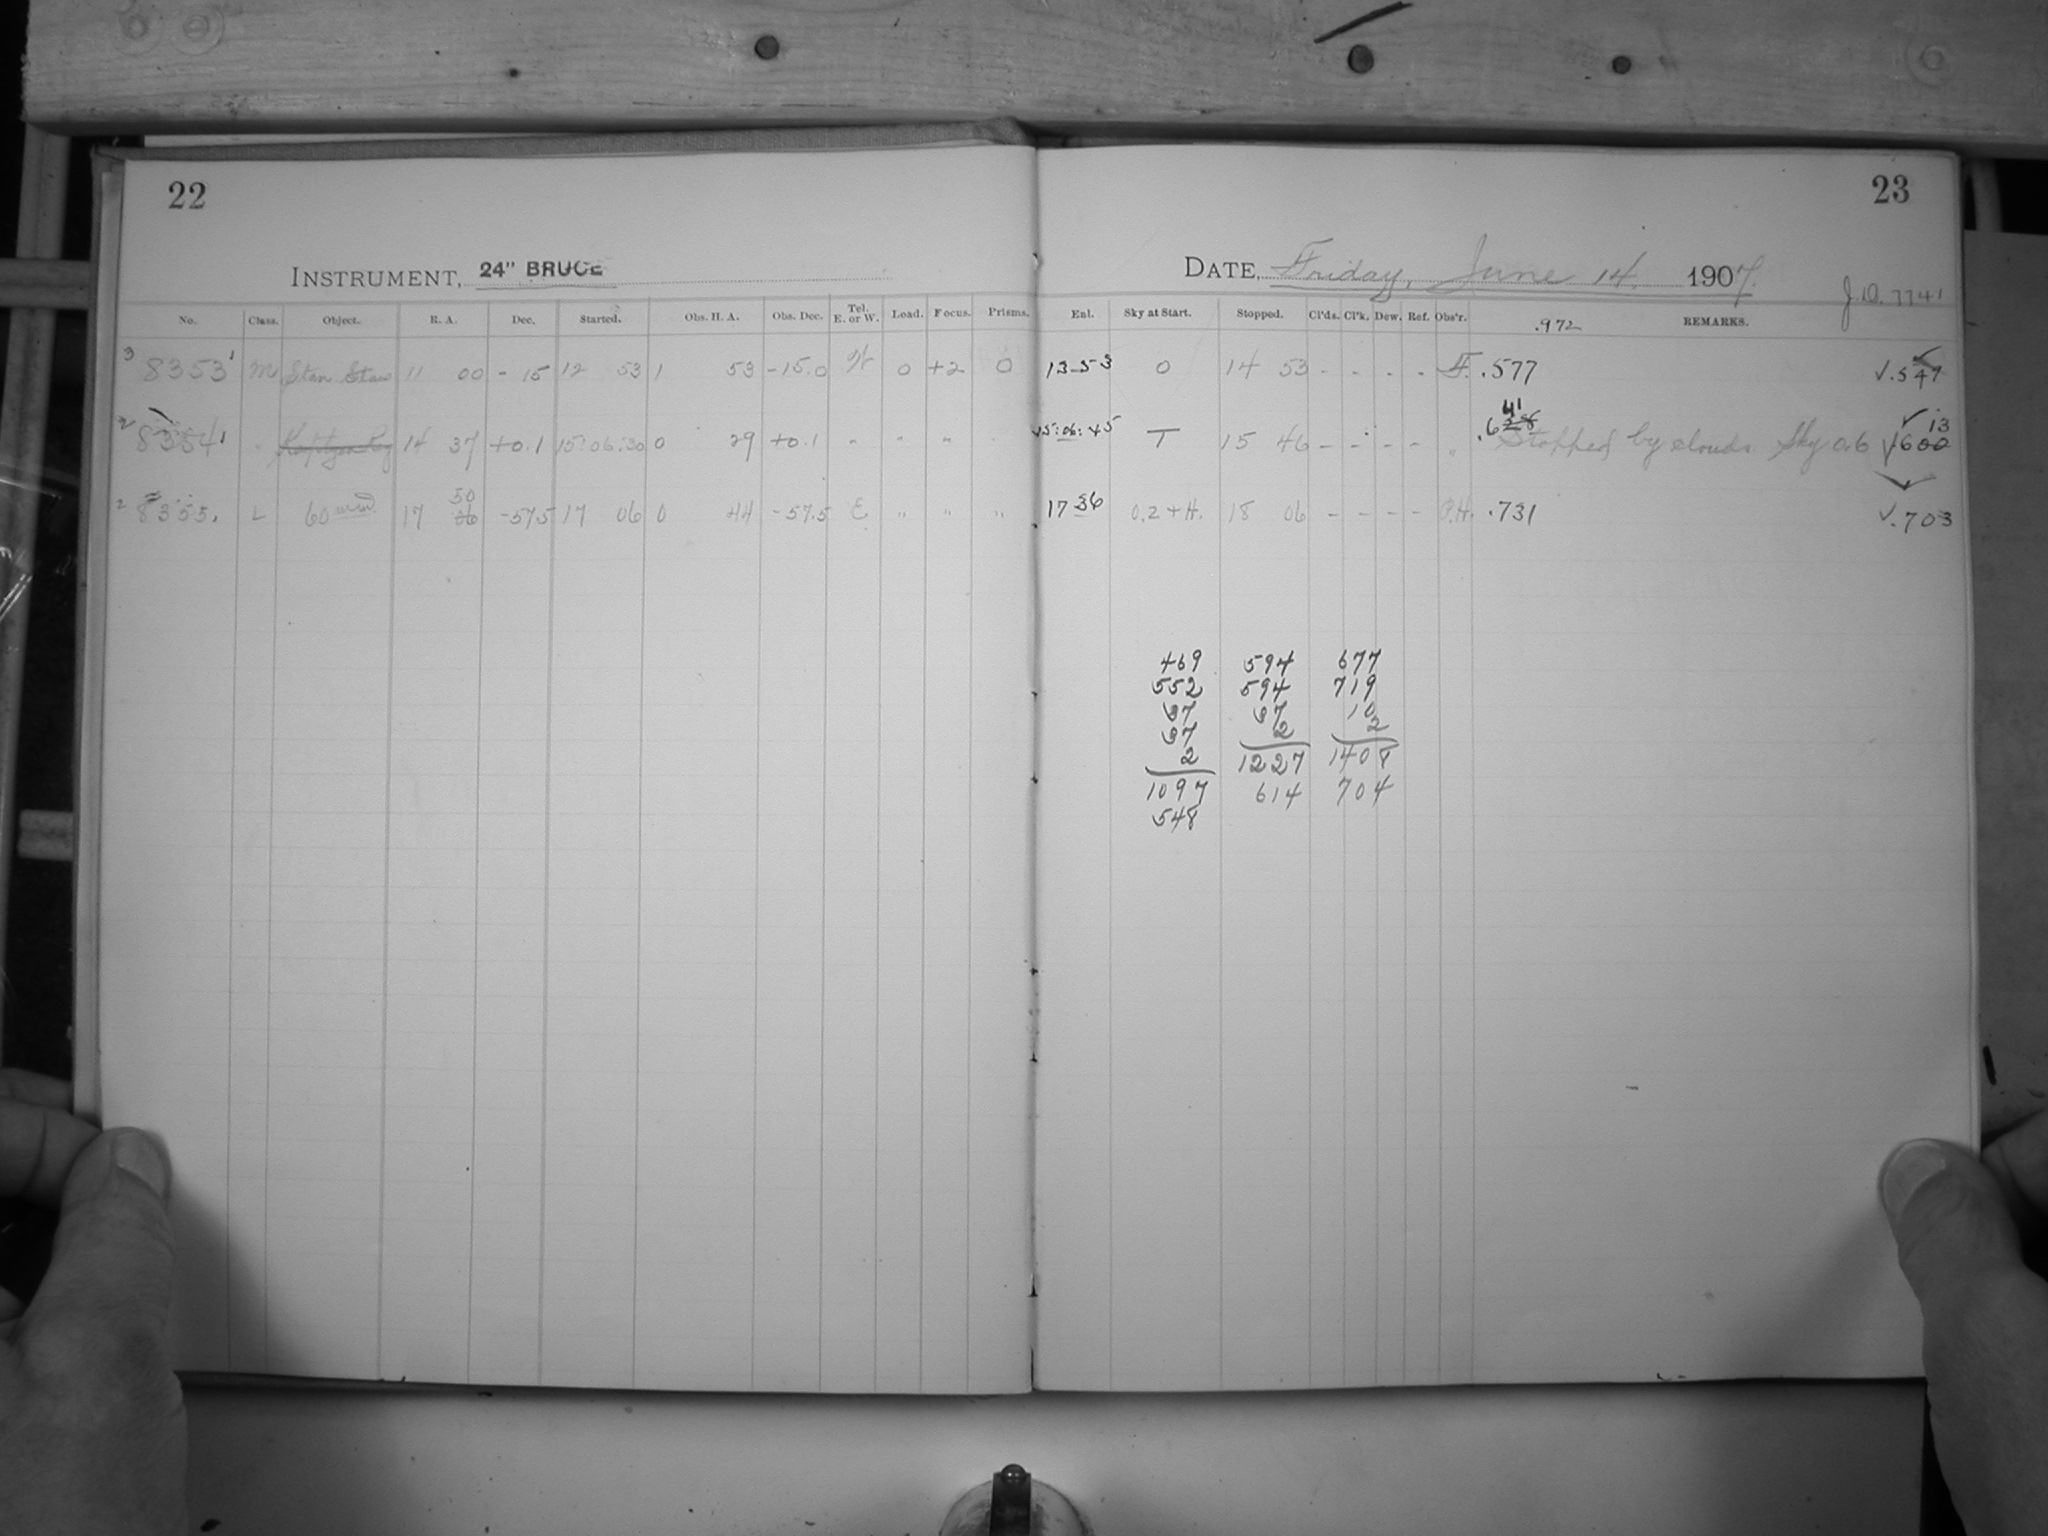 22
23
INSTRUMENT, 24" BRUCE
DATE, Friday, June 14. 1907.
J.D. 7741
No. Class. Object. R. A. Dec. Started. Obs. H. A. Obs. Dec. Tel. E. or W. Load. Focus. Prisms. Enl. Sky at Start. Stopped. Cl'ds. Cl'k. Dew. Ref. Obs'r. .972 REMARKS.
3 8353 1 M Stan Stars 11 00 - 15 12 53 1 53 -15.0 W 0 +2 0 13 53 0 14 53 - - - - F. .577 √.547
2 8354 1 " 14 37 +0.1 15:06:30 0 29 +0.1 " " " " 15:06:45 T 15 46 - - - - " .6 41 Stopped by clouds. Sky 0.6 √600 13
2 8355 1 L 60 mm 17 50 06 -57.5 17 06 0 44 -57.5 E " " " 17 36 0.2 + H. 18 06 - - - - P.H. .731 √.703
469 594 677
552 594 719
37 37 10
37 2 2
2 1227 1408
1097 614 704
548